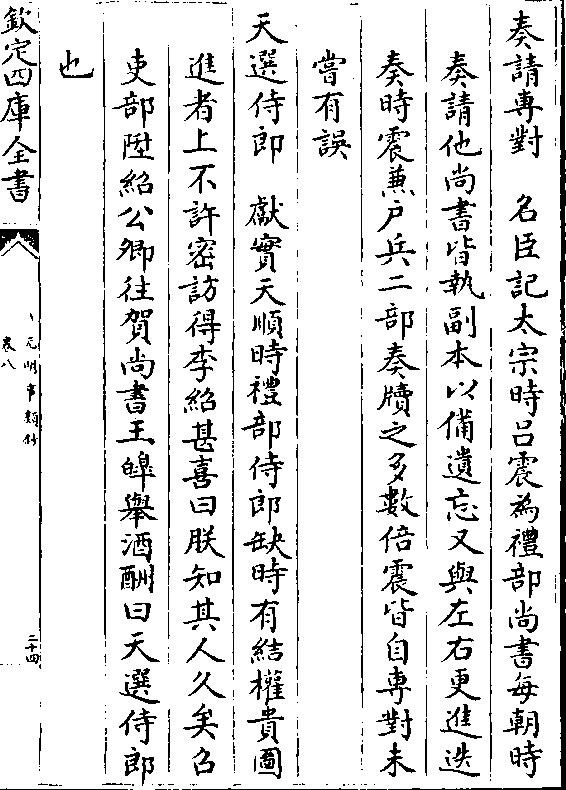 奏請専對　名臣記太宗時吕震為禮部尚書每朝時
奏請他尚書皆執副本以備遺忘又與左右更進迭
奏時震兼户兵二部奏牘之多數倍震皆自専對未
嘗有誤
天選侍郎　獻實天順時禮部侍郎缺時有結權貴圖
進者上不許密訪得李紹甚喜曰朕知其人久矣召
吏部陞紹公卿往賀尚書王皥舉酒酬曰天選侍郎
也
欽定四庫全書
元明事類鈔
卷八
二十四